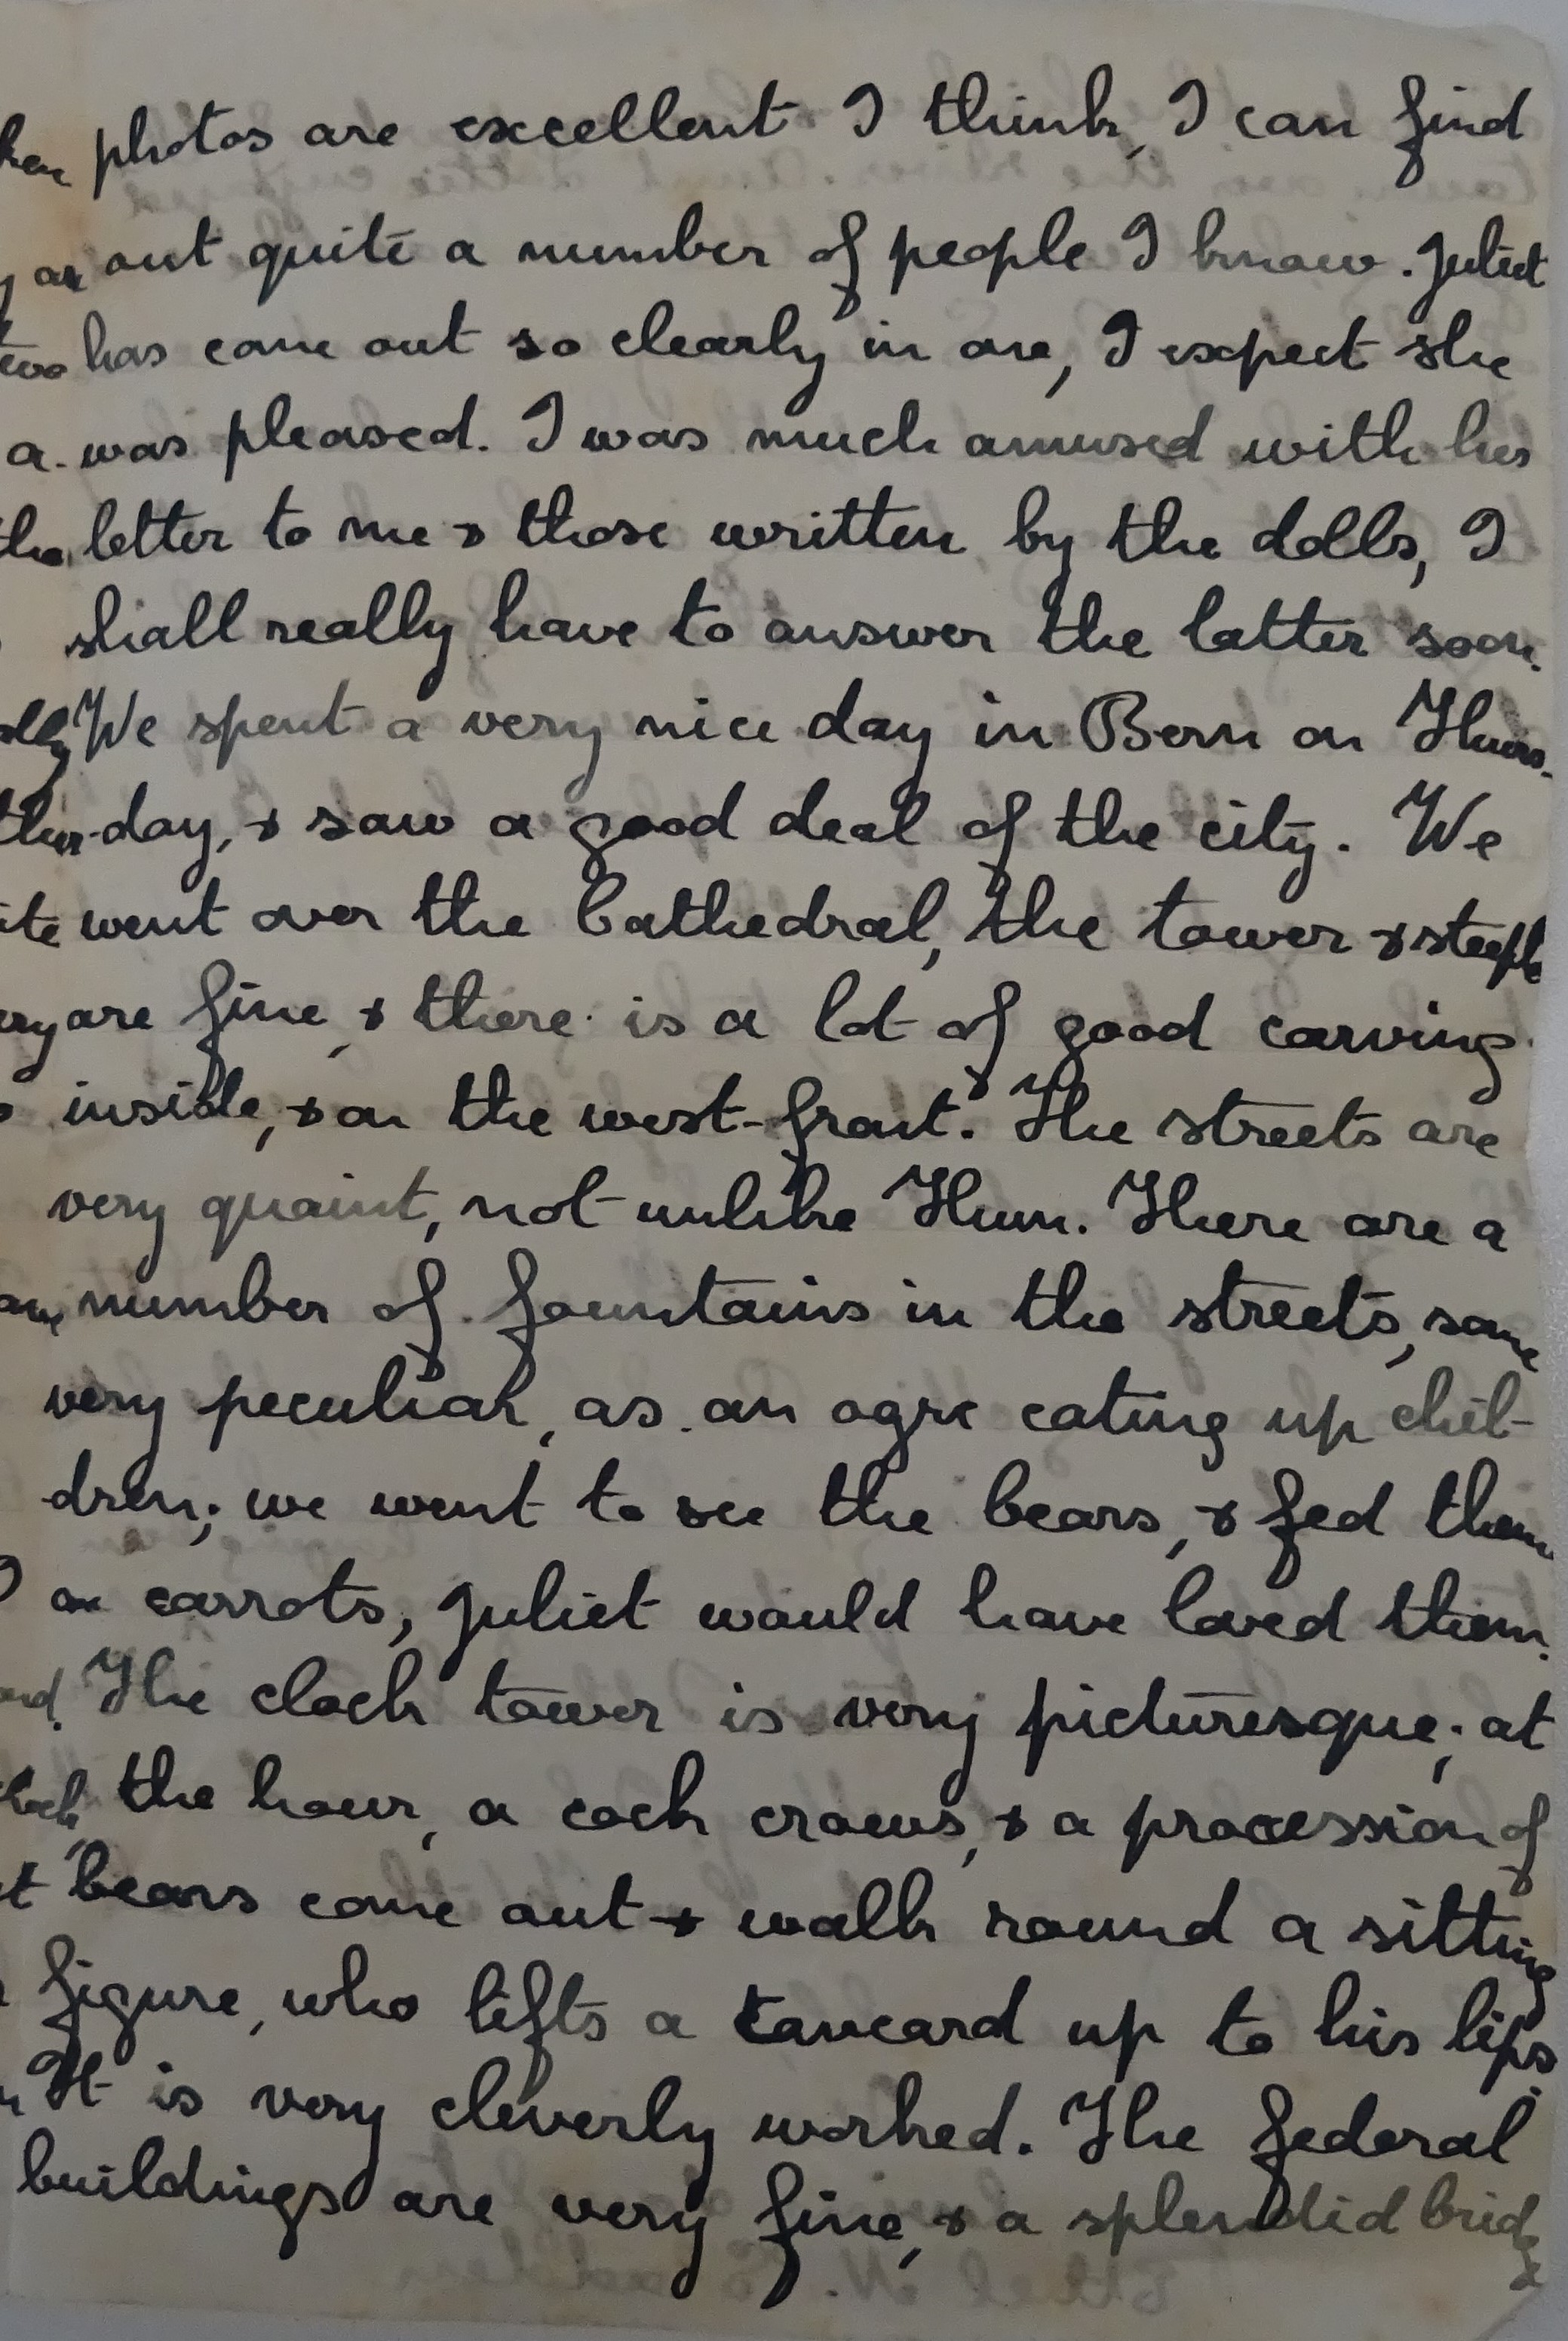 photos are excellent I think, I can find
out quite a number of people I know. Juliet
has come out so clearly in one, I expect she
was pleased. I was much amused with her
letter to me & those written by the dolls, I
shall really have to answer the latter soon.
We spent a very nice day in Bern on Thurs-
day, & saw a good deal of the city. We
went over the Cathedral, the tower & steeple
are fine, & there is a lot of good carving
inside, & on the west-front. The streets are
very quaint, not unlike Thun. There are a
number of fountains in the streets, some
very peculiar, as an ogre eating up chil-
dren; we went to see the bears, & fed them
on carrots, Juliet would have loved them.
The clock tower is very picturesque; at
the hour, a cock crows, & a procession of
bears come out & walk round a sitting
figure, who lifts a tancard up to his lips.
It is very cleverly worked. The federal
buildings are very fine, & a splendid bridge